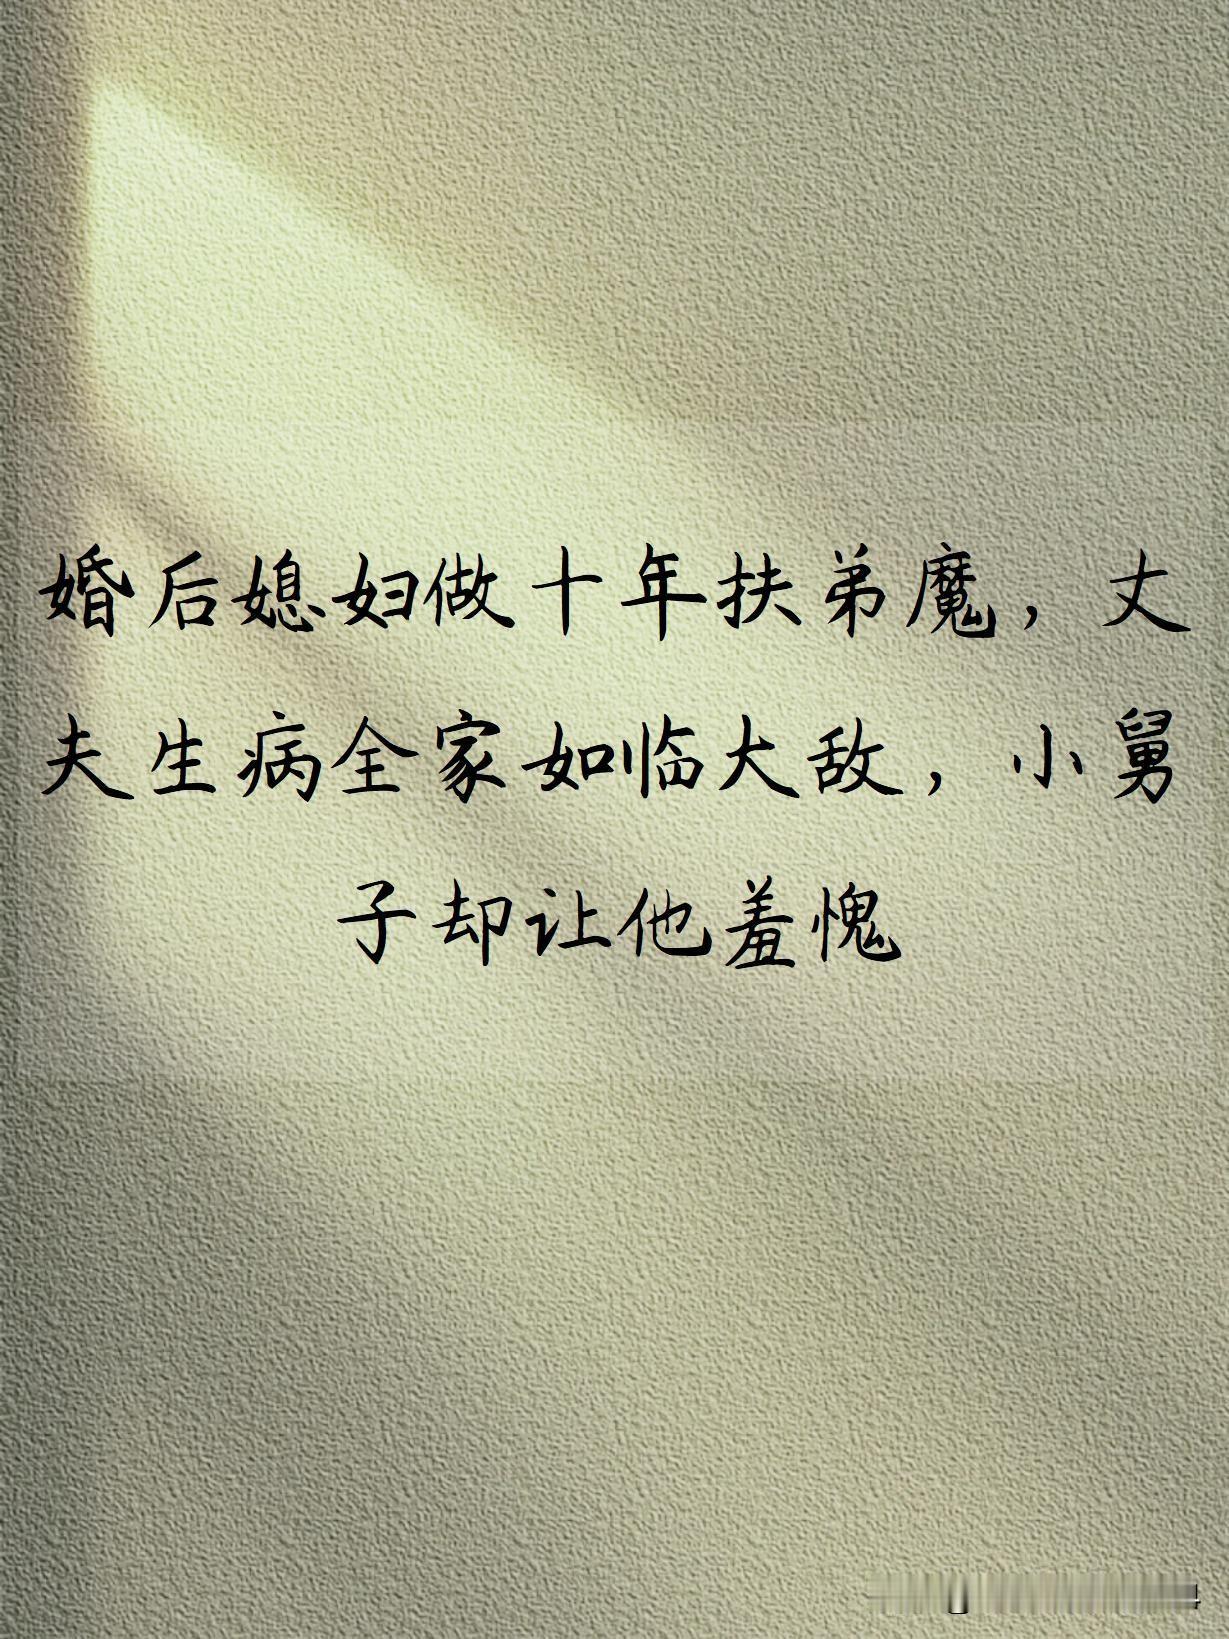 婚后媳妇做十年扶弟魔，丈
夫生病全家如临大敌，小舅
子却让他羞愧